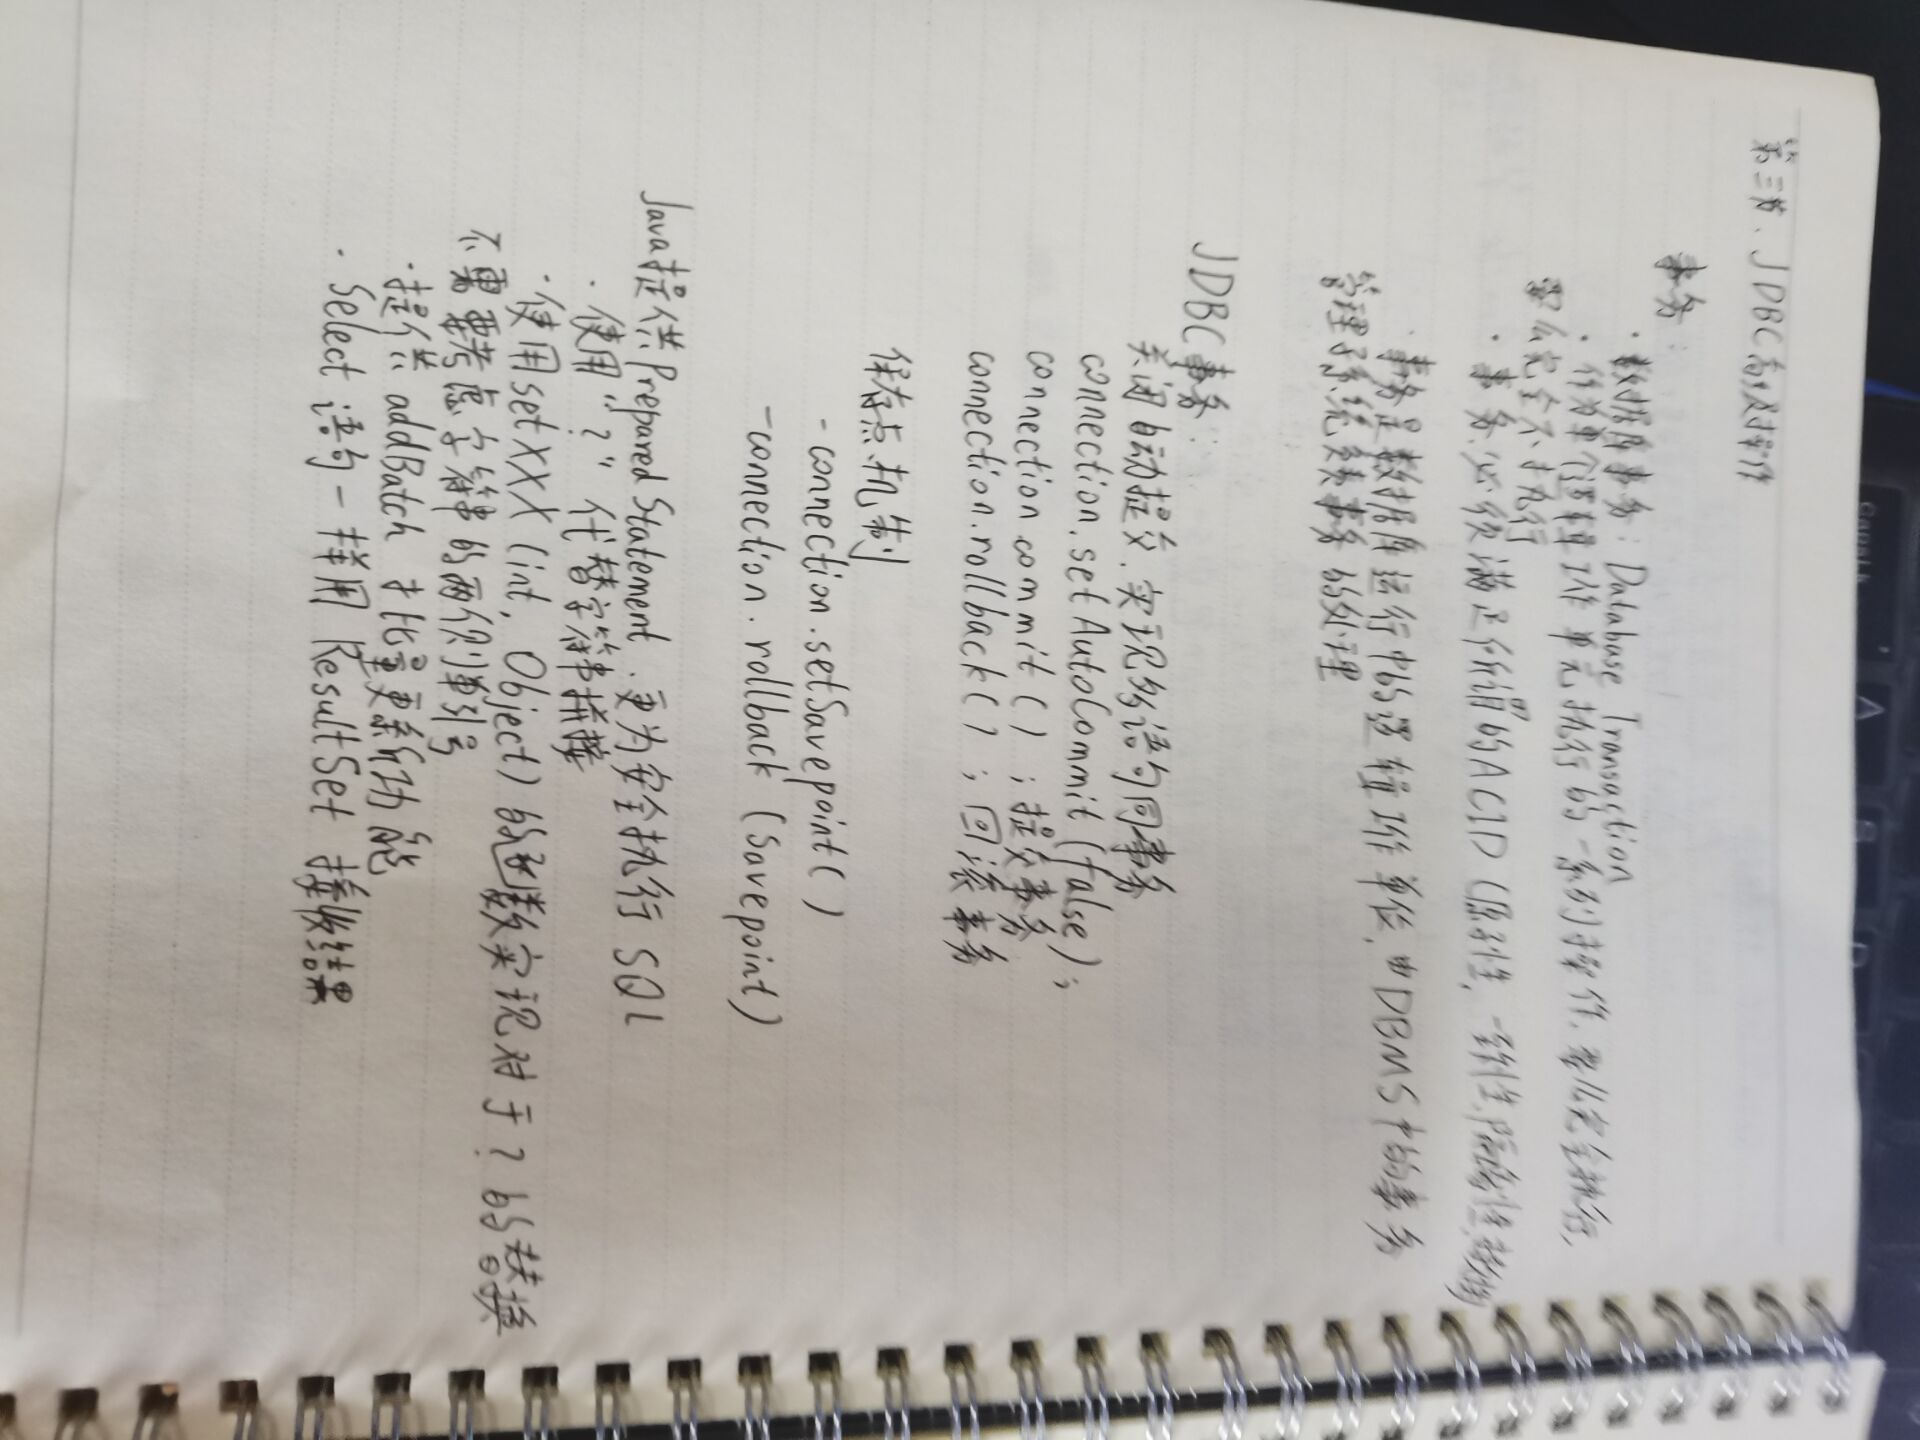 第三节、JDBC高级操作
事务:
·数据库事务: Database Transaction
·作为单个逻辑工作单元执行的一系列操作. 要么完全执行,
要么完全不执行
·事务, 必须满足所谓的ACID (原子性, 一致性, 隔离性, 持久性)
·事务是数据库运行中的逻辑工作单位, 由DBMS中的事务
管理子系统负责事务的处理
JDBC事务:
关闭自动提交, 实现多语句同事务
connection.setAutoCommit(false);
connection.commit(); 提交事务
connection.rollback(); 回滚事务
保存点机制
- connection.setSavepoint()
- connection.rollback(Savepoint)
Java提供PreparedStatement, 更为安全执行SQL
·使用"?" 代替字符串拼接
·使用setXXX(int, Object)的函数实现对于?的替换
不需要考虑字符串的两侧单引号
·提供addBatch 批量更新功能
·Select语句一样用ResultSet接收结果